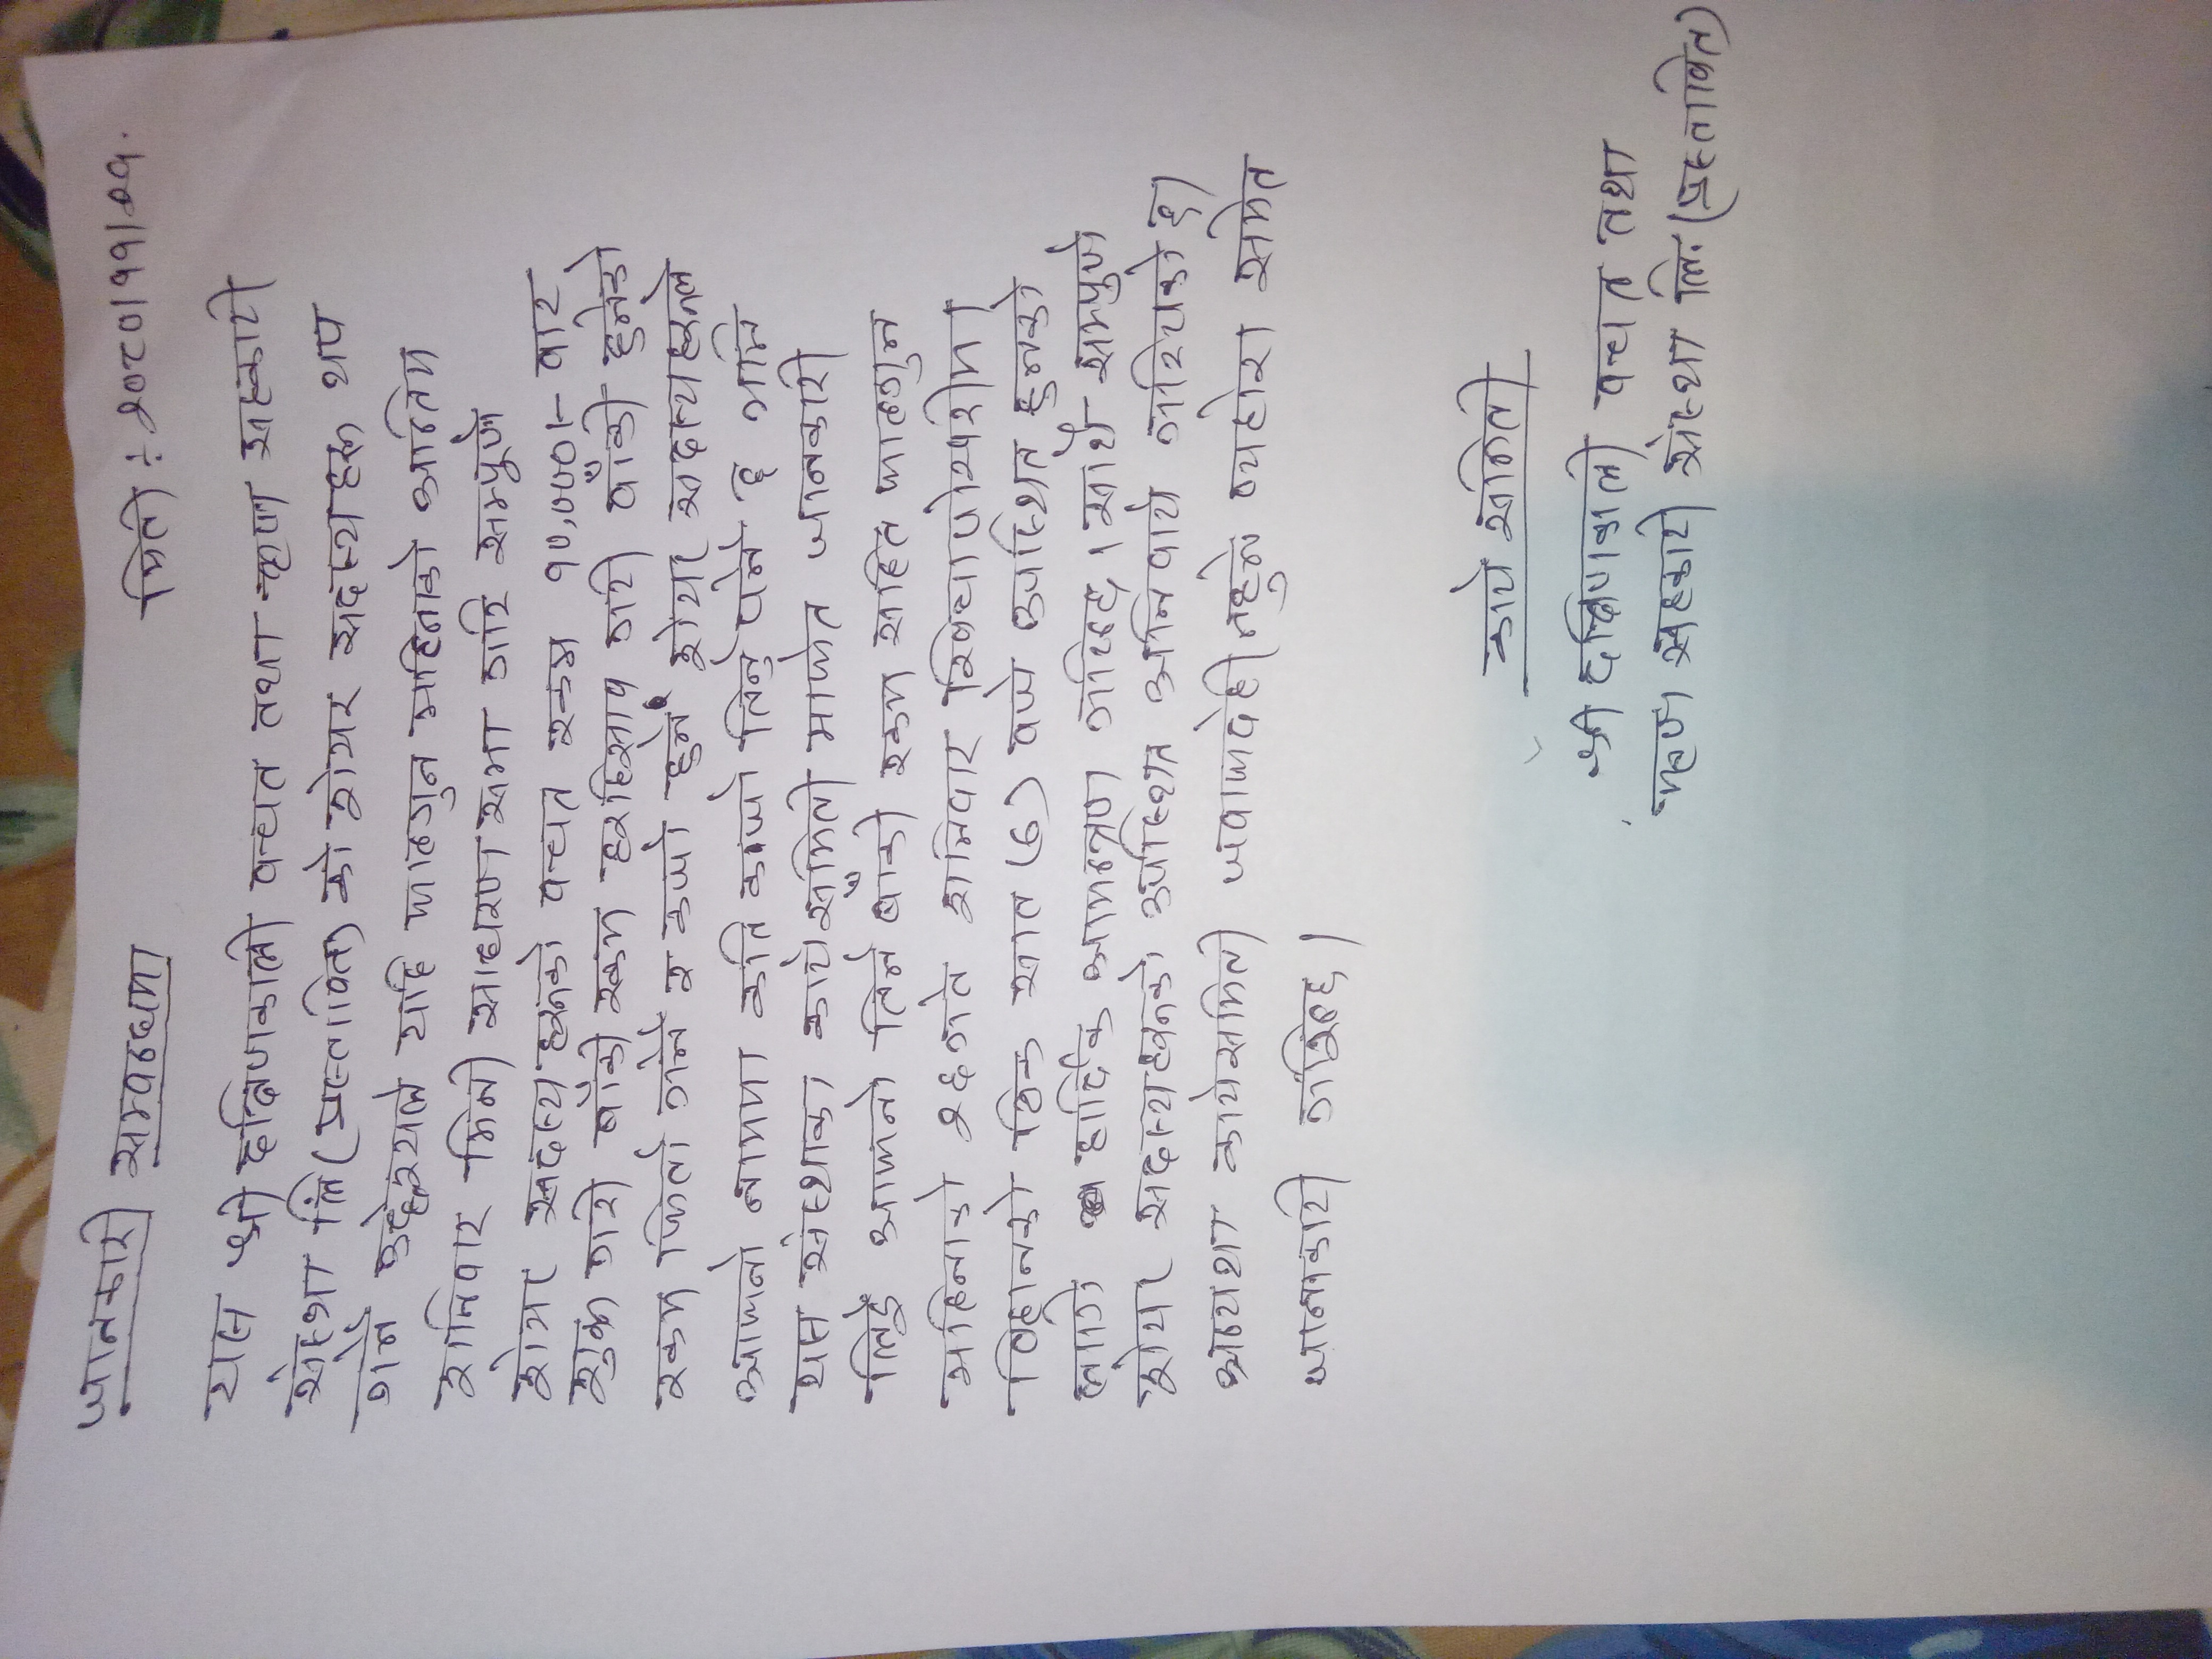 जानकारी सम्वन्धमा
मिती : २०८०।११।२१.
यस श्री दक्षिणकाली वचत तथा ऋण सहकारी
संस्था लि (प्रस्तावित) को शेयर सदस्यहरू थप
गर्ने उद्देश्यले यहि फाल्गुन महिनाको अन्तिम
शनिवार मिनी साधरण सभा गरि सम्पूर्ण
शेयर सदस्यहरूको वचत रकम १०,०००।- वाट
शुरू गरी बाँकी रकम हरहिसाव गरी वाँकी हुनेको
रकम फिर्ता गर्ने र कर्जा हुने शेयर सदस्यहरूले
आफ्नो नाममा कति कर्जा तिर्नु पर्ने छ भनि
यस संस्थाका कार्यसमिती मार्फत जानकारी
लिई आफ्नो तिर्न बाँकी रकम सहित फाल्गुन
महिनाको २६ गते शनिवार खिद्यापोखरीमा
विहानको ठिक सात (७) वजे उपस्थित हुनको
लागी हार्दिक आमन्त्रण गर्दछ । साथै सम्पुर्ण
शेयर सदस्यहरूको उपस्थित अनिवार्य गरियको छ।
अन्यथा कार्यसमिती जवाफदेही नहुने व्यहोरा समेत
जानकारी गरिन्छ ।
कार्य समिती
श्री दक्षिणकाली वचत तथा
ऋण सहकारी संस्था लि. (प्रस्तावित)